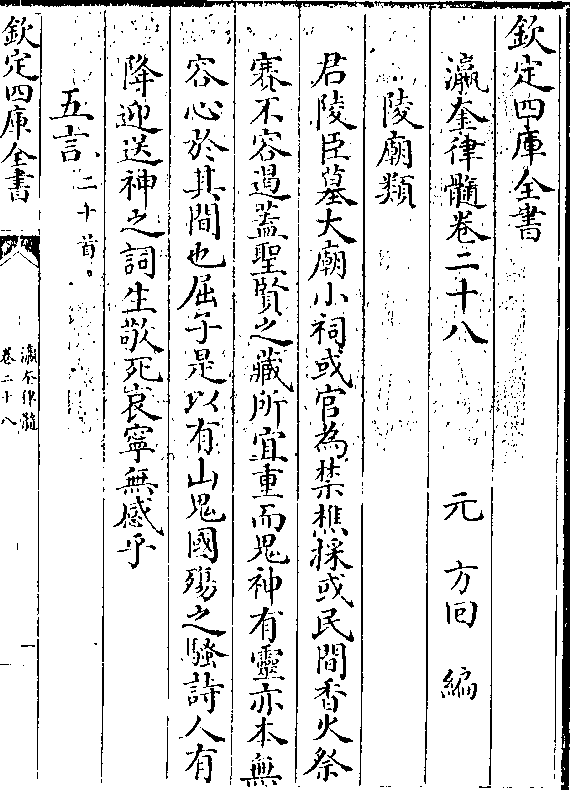 欽定四庫全書
瀛奎律髓卷二十八
元 方回 編
陵廟類
君陵臣墓大廟小祠或官為禁樵採或民間香火祭
賽不容遏蓋聖賢之藏所宜重而鬼神有靈亦本無
容心於其間也屈子是以有山鬼國殤之騷詩人有
降迎送神之詞生敬死哀寧無感乎
五言二十首。
欽定四庫全書
瀛奎律髓
卷二十八
一